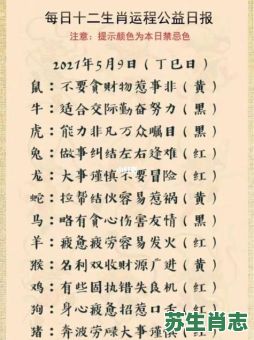 每日十二生肖运程公益日报
注意：提示颜色为本日禁忌色
2021年5月9日（丁巳日）
鼠：不要贪财物惹事非（黄）
牛：适合交际勤奋努力（黑）
虎：能力非凡万众瞩目（红）
兔：做事纠结左右逢难（红）
龙：大事谨慎不要冒险（红）
蛇：拉帮结伙容易惹祸（黄）
马：略有贪心伤害友情（黑）
羊：疲惫疲劳容易发火（红）
猴：名利双收财源广进（黄）
鸡：有些固执错失良机（红）
狗：身心疲惫招惹口舌（红）
猪：奔波劳碌大事谨慎（红）
苏生肖志